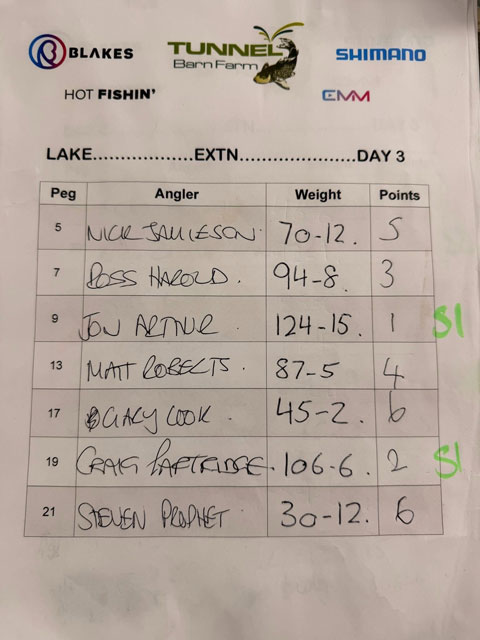 BLAKES
TUNNEL
Barn Farm
SHIMANO
HOT FISHIN'
EMM
LAKE..................EXTN.....................DAY 3
Peg Angler Weight Points
5 NICK JAMIESON. 70-12. 5
7 ROSS HAROLD. 94-8. 3
9 JON ARTHUR. 124-15. 1 S1
13 MATT ROBERTS. 87-5 4
17 GARY COOK. 45-2. 6
19 CRAIG PARTRIDGE. 106-6. 2 S1
21 STEVEN PROPHET. 30-12. 6